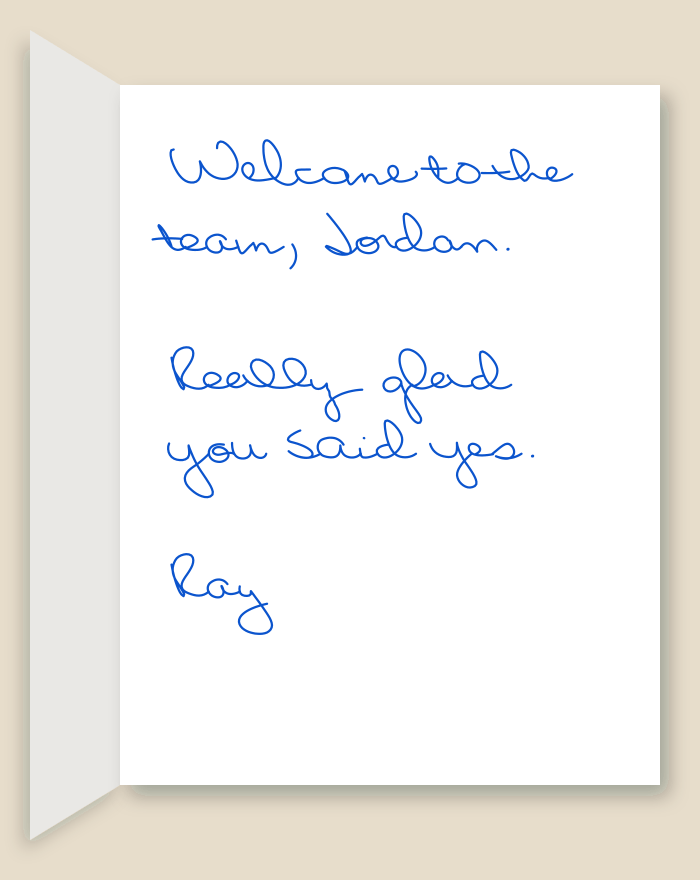 Welcome to the
team, Jordan.
Really glad
you said yes.
Ray